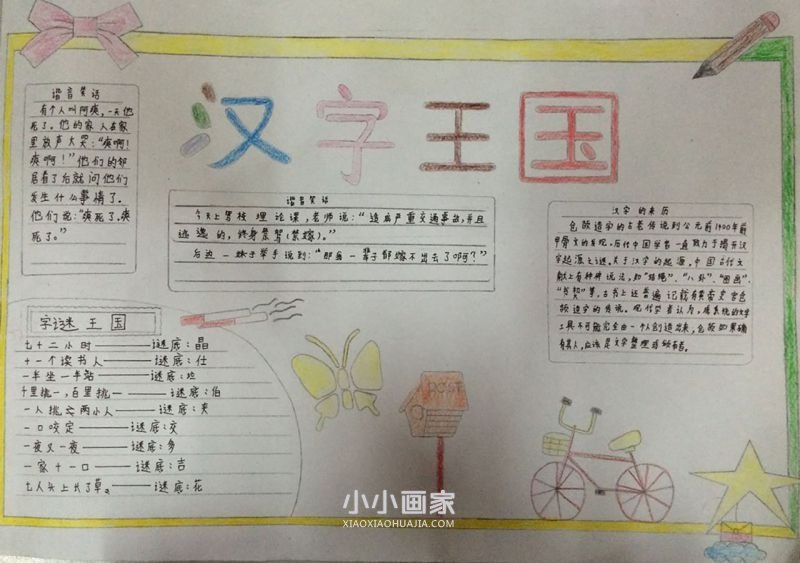 汉字王国
谐音笑话
有个人叫阿爽,一天他
死了。他的家人在家
里放声大哭:“爽啊!
爽啊!”他们的邻
居看了后就问他们
发生什么事情了.
他们说:“爽死了.爽
死了。”
谐音笑话
今天上驾校理论课,老师说:“造成严重交通事故,并且
逃逸的,终身禁驾(禁嫁)。”
后边一妹子举手说到:“即虽一辈子都嫁不出去了啊?”
汉字的来历
仓颉造字的古老传说到公元前1400年前
甲骨文的发现,历代中国学者一直致力于揭开汉
字起源之谜.关于汉字的起源,中国古代文
献上有种种说法,如“结绳”、“八卦”、“图画”、
“书契”等,古书上还普遍记载有黄帝史官仓
颉造字的传说。现代学者认为,成系统的文字
工具不可能完全由一个人创造出来,仓颉如果确
有其人,应该是文字整理者或颁布者。
字谜王国
七十二小时——谜底:晶
十一个读书人——谜底:仕
一半坐一半站——谜底:
千里挑一,百里挑一——谜底:伯
一人挑两小人——谜底:夹
一口咬定——谜底:交
一夜又一夜——谜底:多
一家十一口——谜底:吉
七人头上长了草。谜底:花
POST
小小画家
XIAOXIAOHUAJIA.COM